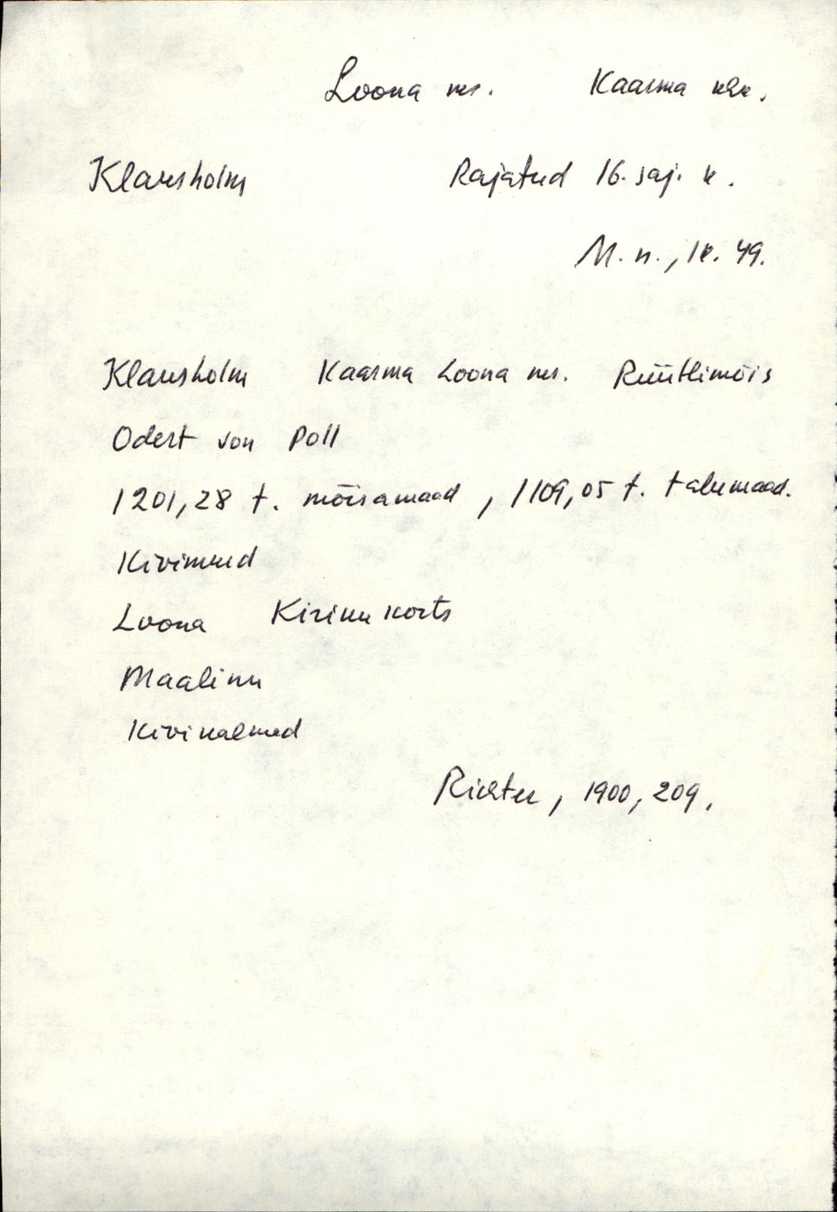 Loona ms. Kaarma khk.
Klausholm Rajatud 16. saj. k.
M. n., lk. 49.
Klausholm Kaarma Loona ms. Rüütlimõis
Odert von Poll
1201,28 t. mõisamaad, 1109,05 t. talumaad.
Loona
Maalinn
Richter, 1900, 209.